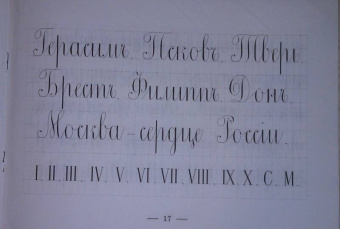 Герасимъ. Псковъ. Тверь.
Брестъ. Филиппъ. Донъ.
Москва – сердце Россіи.
I. II. III. IV. V. VI. VII. VIII. IX. X. C. M.
— 17 —